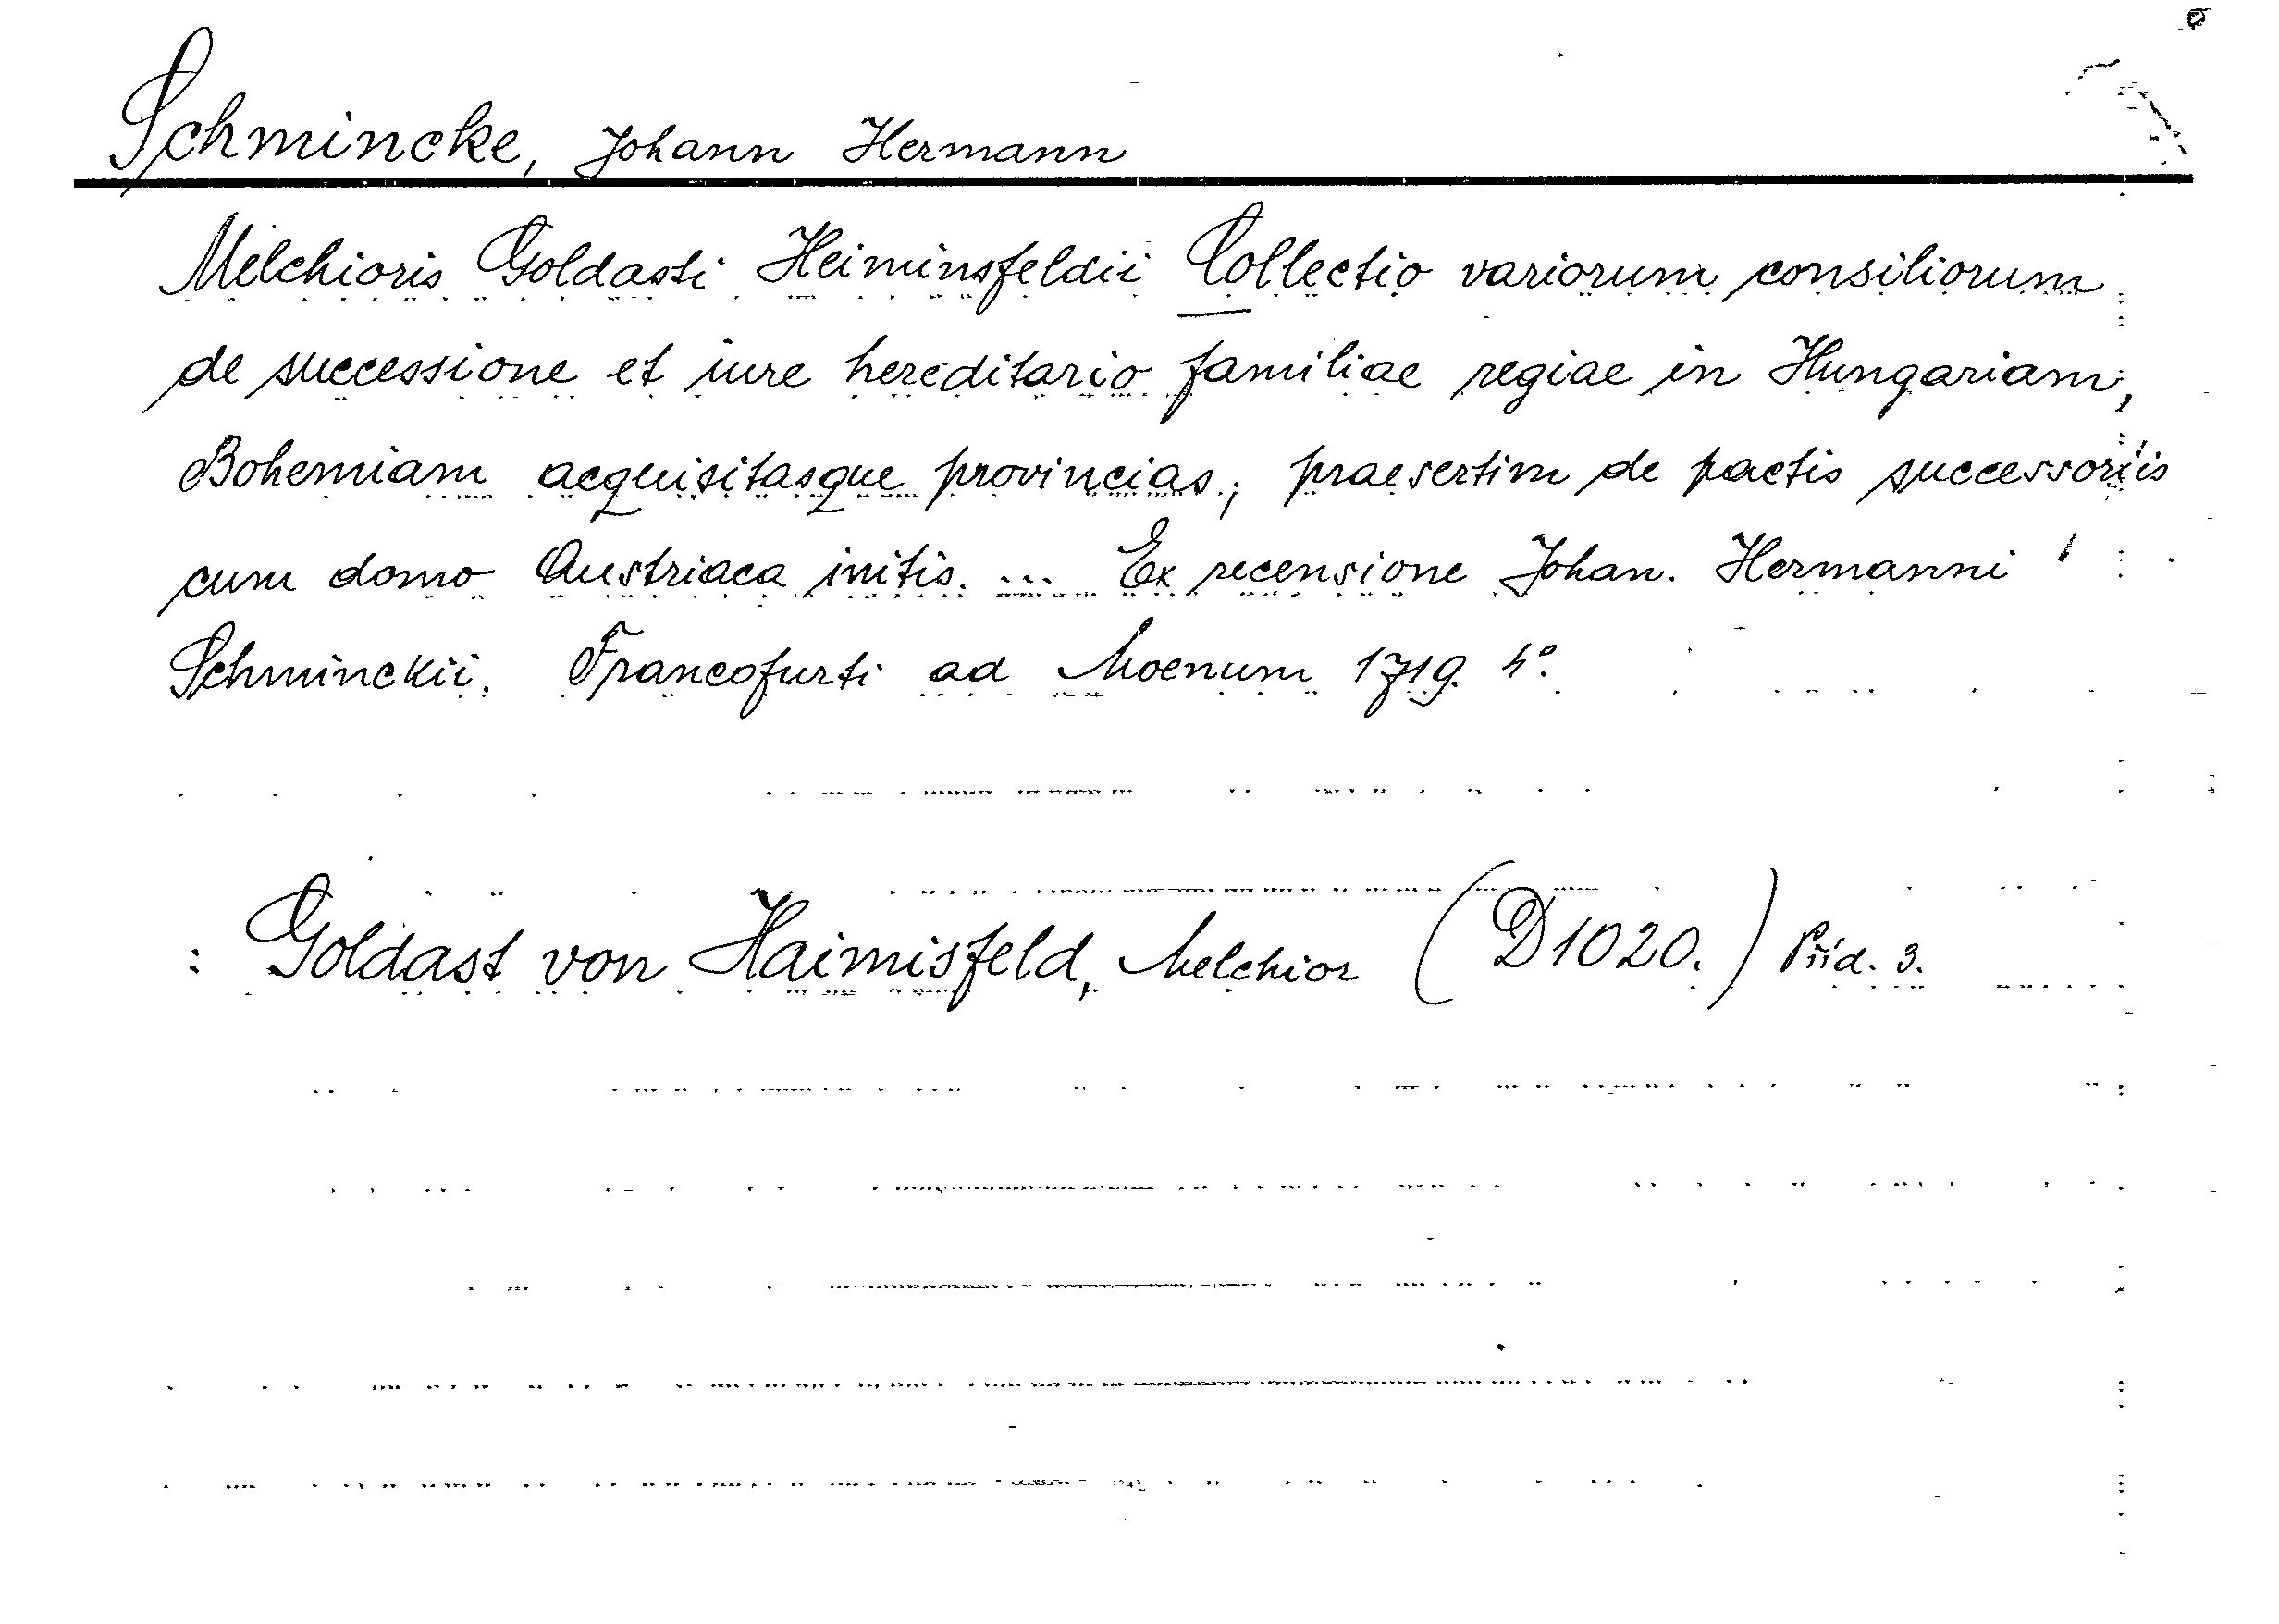 Schmincke, Johann Hermann
Melchioris Goldasti Heiminsfeldii Collectio variorum consiliorum
de successione et iure hereditario familiae regiae in Hungariam,
Bohemiam acquisitasque provincias, praesertim de pactis successoriis
cum domo Austriaca initis. ... Ex recensione Johan. Hermanni
Schminckii. Francofurti ad Moenum 1719. 4°.
: Goldast von Haimisfeld, Melchior (D1020.) Příd. 3.